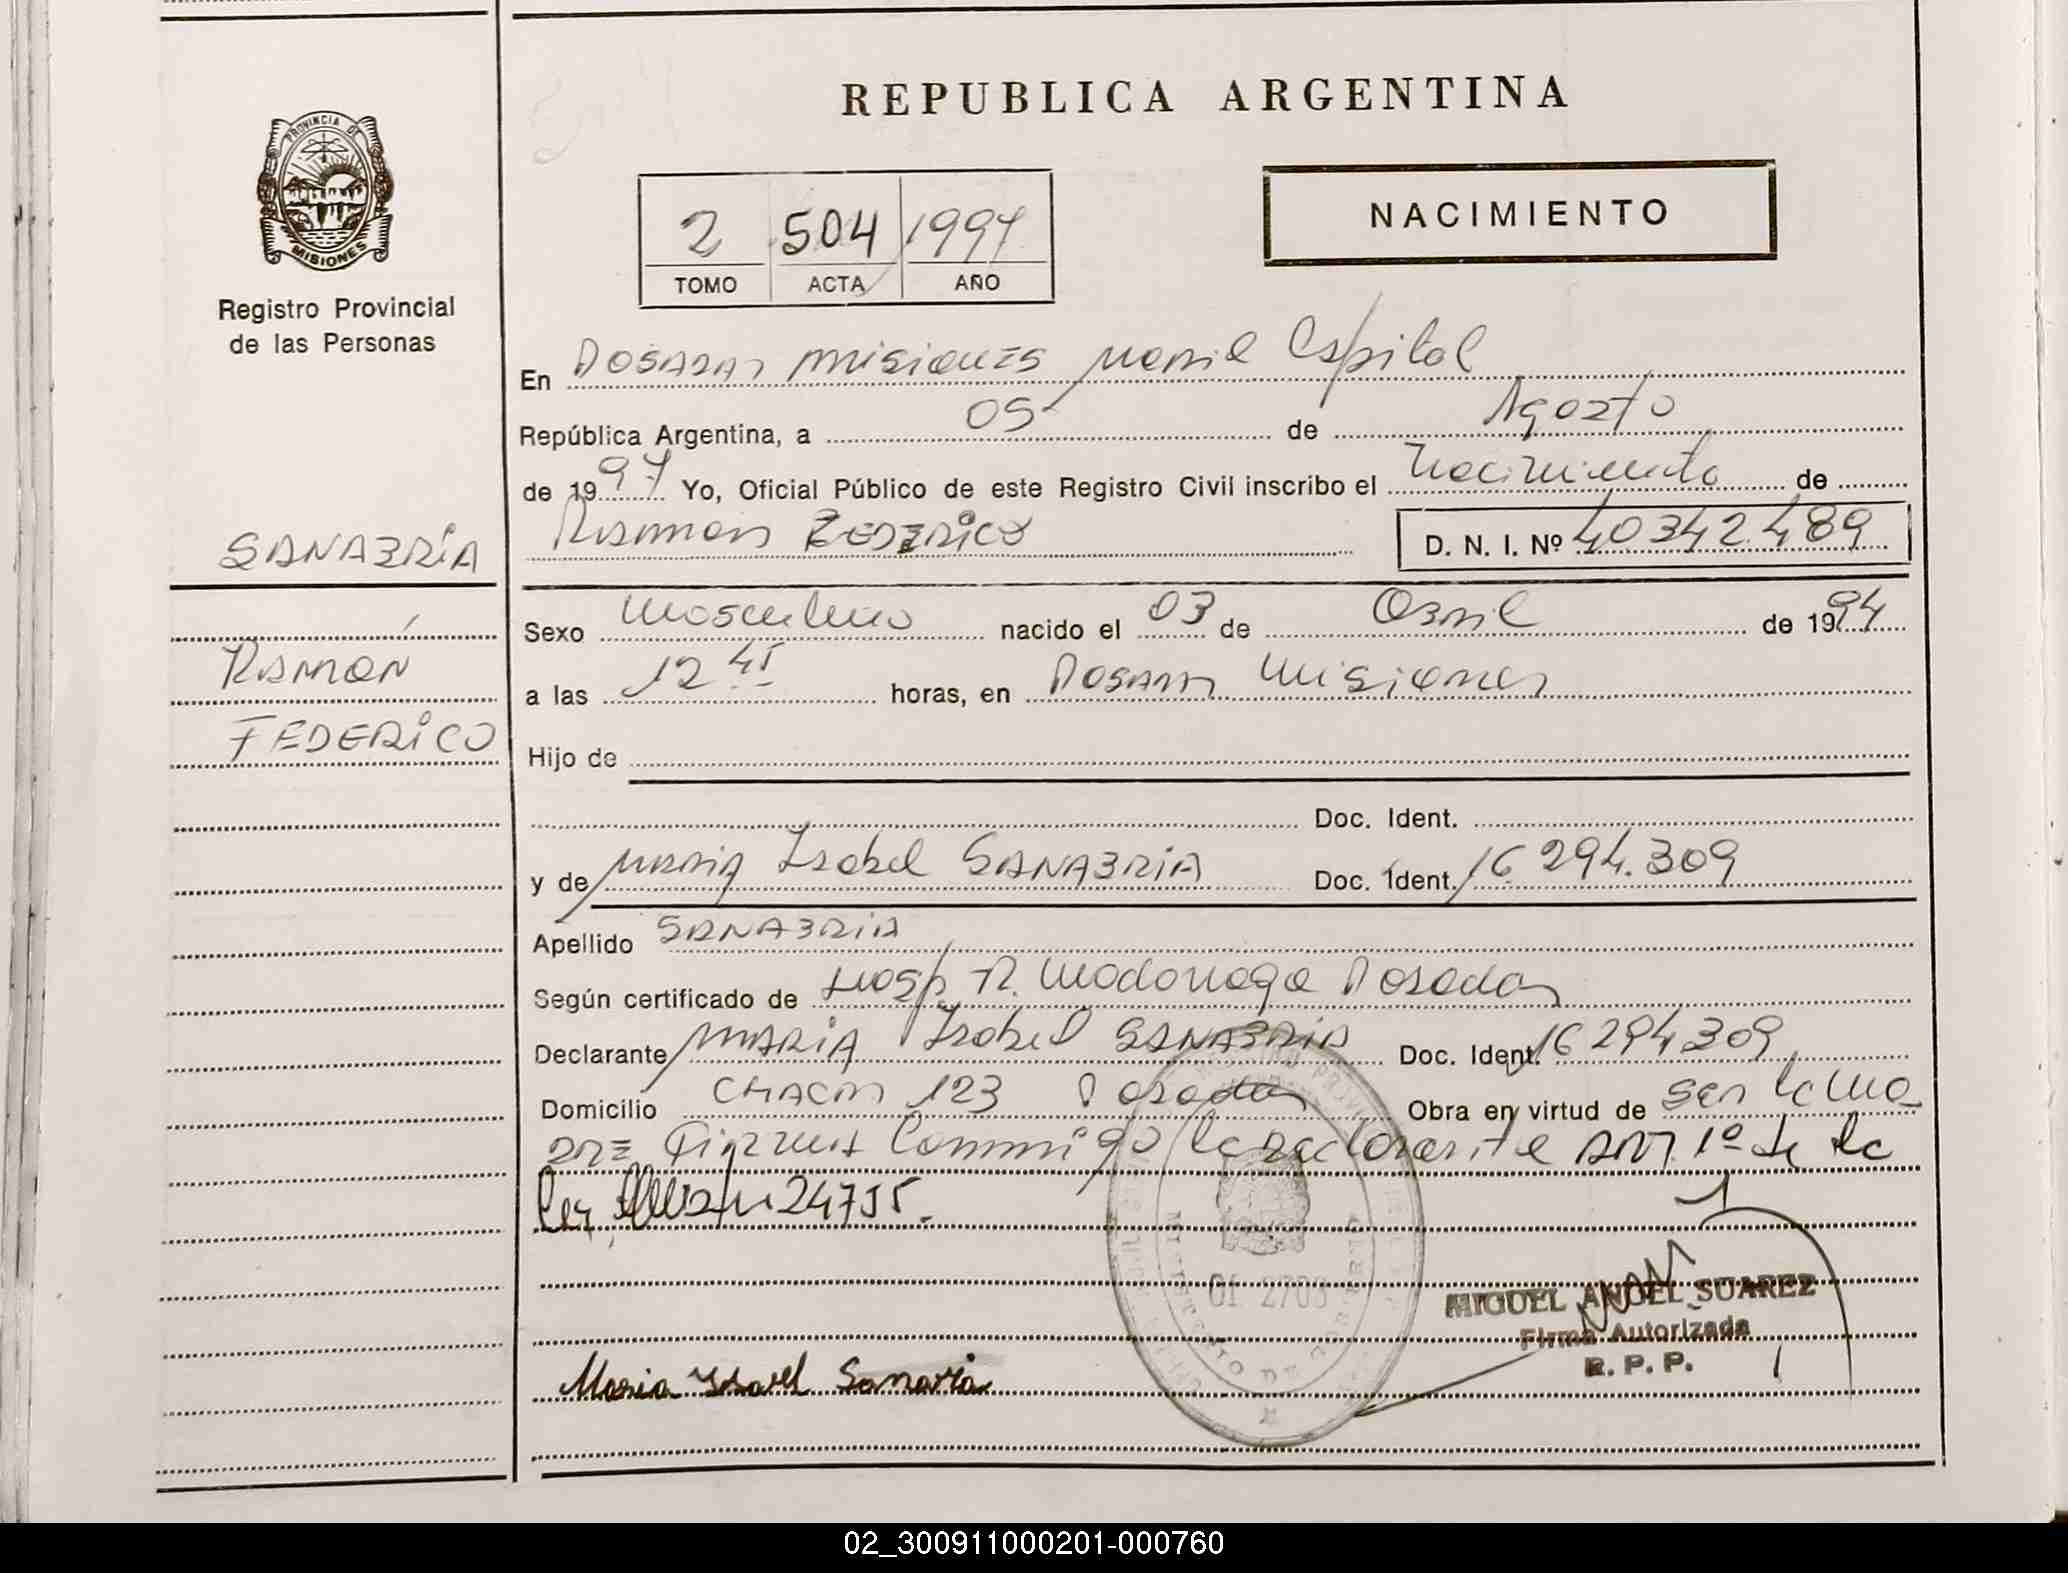 REPUBLICA ARGENTINA
PROVINCIA DE
MISIONES
Registro Provincial
de las Personas
NACIMIENTO
2 504 1997
TOMO ACTA AÑO
En Posadas Misiones Capital
República Argentina, a 05 de Agosto
de 1997 Yo, Oficial Público de este Registro Civil inscribo el Nacimiento de
Ramon Federico D. N. I. Nº 40342.489
SANABRIA
RAMON
FEDERICO
Sexo Masculino nacido el 03 de Abril de 1994
a las 12 horas, en Posadas Misiones
Hijo de
Doc. Ident.
y de Maria Isabel SANABRIA Doc. Ident. 16 294.309
Apellido SANABRIA
Según certificado de Hosp. R. Madariaga Posadas
Declarante MARIA Isabel SANABRIA Doc. Ident. 16 294 309
Domicilio CHACO 123 Posadas Obra en virtud de
que firma Conmigo la declarante ART. 1º de la
Ley 24755.
MINISTERIO DE GOBIERNO
Of 2703
MIGUEL ANGEL SUAREZ
Firma Autorizada
R. P. P.
Maria Isabel Sanavria
02_300911000201-000760